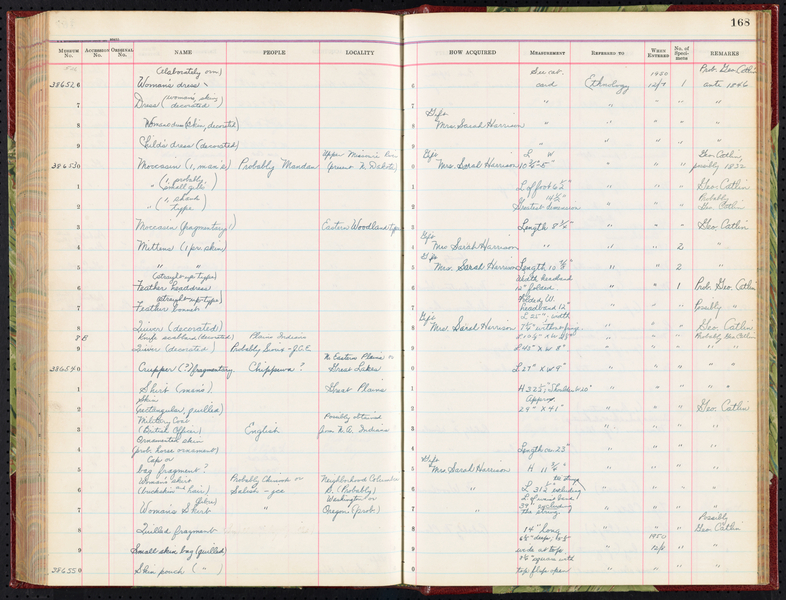 168
MUSEUM No. ACCESSION No. ORIGINAL No. NAME PEOPLE LOCALITY HOW ACQUIRED MEASUREMENT REFERRED TO WHEN ENTERED No. of Specimens REMARKS
(elaborately orn) See cat. 1950 Prob. Geo. Catl-
38652 6 Woman's dress 6 card Ethnology 12/7 1 ante 1846
7 Dress (woman's, skin decorated) 7 " " " " "
Gift
8 Woman's dress (skin, decorated) 8 Mrs. Sarah Harrison " " " " "
9 Child's dress (decorated) 9 " " " " "
Upper Missouri Riv. Gift L W Geo. Catlin,
38653 0 Moccasin (1, man's) Probably Mandan (present N. Dakota) 0 Mrs. Sarah Harrison " " " possibly 1832
1 " (1, probably small girl's) 1 L of foot 6 1/2" " " " Geo. Catlin
2 " (1, shank type) 2 14 1/2" Greatest dimension " " " Probably Geo. Catlin
3 Moccasin (fragmentary 1) Eastern Woodland type 3 Length 8 1/4" " " " Geo. Catlin
Gift
4 Mittens (1 pr. skin) 4 Mrs Sarah Harrison " " " 2 "
Gift
5 " " 5 Mrs. Sarah Harrison Length 10 " " 2 "
(straight-up type) Width headband
6 Feather headdress 6 12" folded " " 1 Prob. Geo. Catlin
(straight-up type) Folded W.
7 Feather bonnet 7 headband 12" " " " Possibly "
Gift L 25", width
8 Quiver (decorated) 8 Mrs. Sarah Harrison without fringe " " " Geo. Catlin
8 B Knife scabbard (decorated) Plains Indians " " " Probably Geo. Catlin
9 Quiver (decorated) Probably Sioux - J.G.E. 9 L 42" x W 8" " " " " "
N. Eastern Plains or
38654 0 Crupper (?) fragmentary Chippewa ? Great Lakes 0 L 27" x W 9" " " " " "
1 Shirt (man's) Great Plains 1 " " " " "
Skin Approx.
2 (rectangular, quilled) 2 29" x 41" " " " Geo. Catlin
Military Coat Possibly obtained
3 (British Officer) English from N.A. Indians 3 " " " "
Ornamented skin
4 (prob. horse ornament) 4 Length ca 23" " " " "
Cap or Gift
5 bag fragment ? 5 Mrs Sarah Harrison H 11 3/4" " " " "
Woman's skirt Probably Chinook or Neighborhood Columbia
6 (buckskin and hair) Salish - gee R. (Probably) 6 " L 31 1/2 excluding " " " "
(skin) Washington or
7 Woman's Skirt " Oregon (prob.) 7 39" excluding the string " " " "
Possibly
8 Quilled fragment 8 14" long " " " Geo. Catlin
9 Small skin bag (quilled) 9 wide at top " 1950 12/8 " "
38655 0 Skin pouch ( " ) 0 square with top flap open " " " "